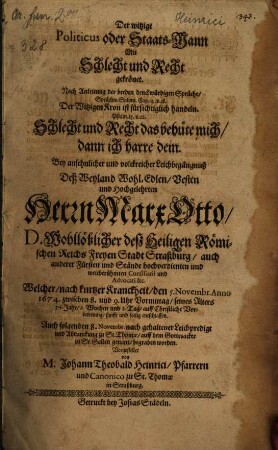 Heinrici
343.
328
Der witzige
Politicus oder Staats-Mann
Mit
Schlecht und Recht
gekrönet.
Nach Anleitung der beyden denckwürdigen Sprüche/
Der Witzigen Kron ist fürsichtiglich handeln.
Schlecht und Recht das behüte mich/
dann ich harre dein.
Bey ansehnlicher und volckreicher Leichbegängnuß
Deß Weyland Wohl-Edlen/ Vesten
und Hochgelehrten
Herrn Marx Otto/
D. Wohllöblicher deß Heiligen Römi-
schen Reichs Freyen Stadt Straßburg/ auch
anderer Fürsten und Stände hochverdienten und
weitberühmten Consiliarii und
Advocati &c.
Welcher/ nach kurtzer Kranckheit/ den 5. Novembr. Anno
1674. zwischen 8. und 9. Uhr Vormittag/ seines Alters
Auch folgenden 8. Novembr. nach gehaltener Leichpredigt
und Abdanckung zu St. Thomæ/ auff dem Gottsacker
zu St. Gallen genannt/ begraben worden.
Vorgestellet
von
M. Johann Theobald Heinrici/ Pfarrern
und Canonico zu St. Thomæ
in Straßburg.
Getruckt bey Josias Städeln.